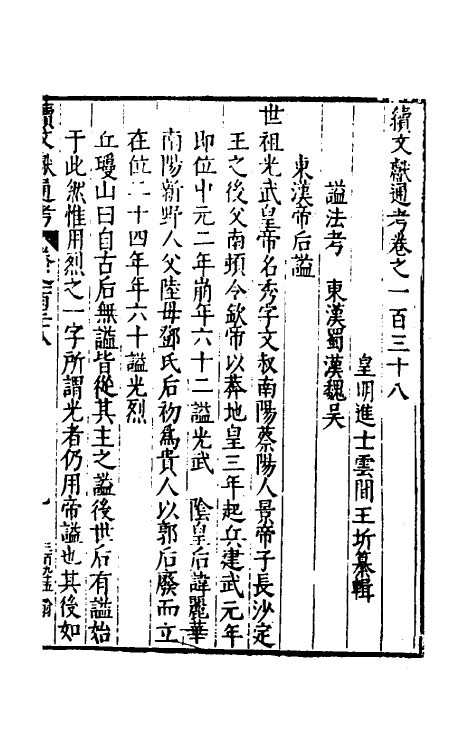 續文獻通考卷之一百三十八
皇明進士雲間王圻纂輯
謚法考　東漢蜀漢魏吴
東漢帝后謚
世祖光武皇帝名秀字文叔南陽蔡陽人景帝子長沙定
王之後父南頓令欽帝以莽地皇三年起兵建武元年
即位中元二年崩年六十二謚光武　陰皇后諱麗華
南陽新野人父陸母鄧氏后初爲貴人以郭后廢而立
在位二十四年年六十謚光烈
丘瓊山曰自古后無謚皆從其主之謚後世后有謚始
于此然惟用烈之一字所謂光者仍用帝謚也其後如
續文獻通考